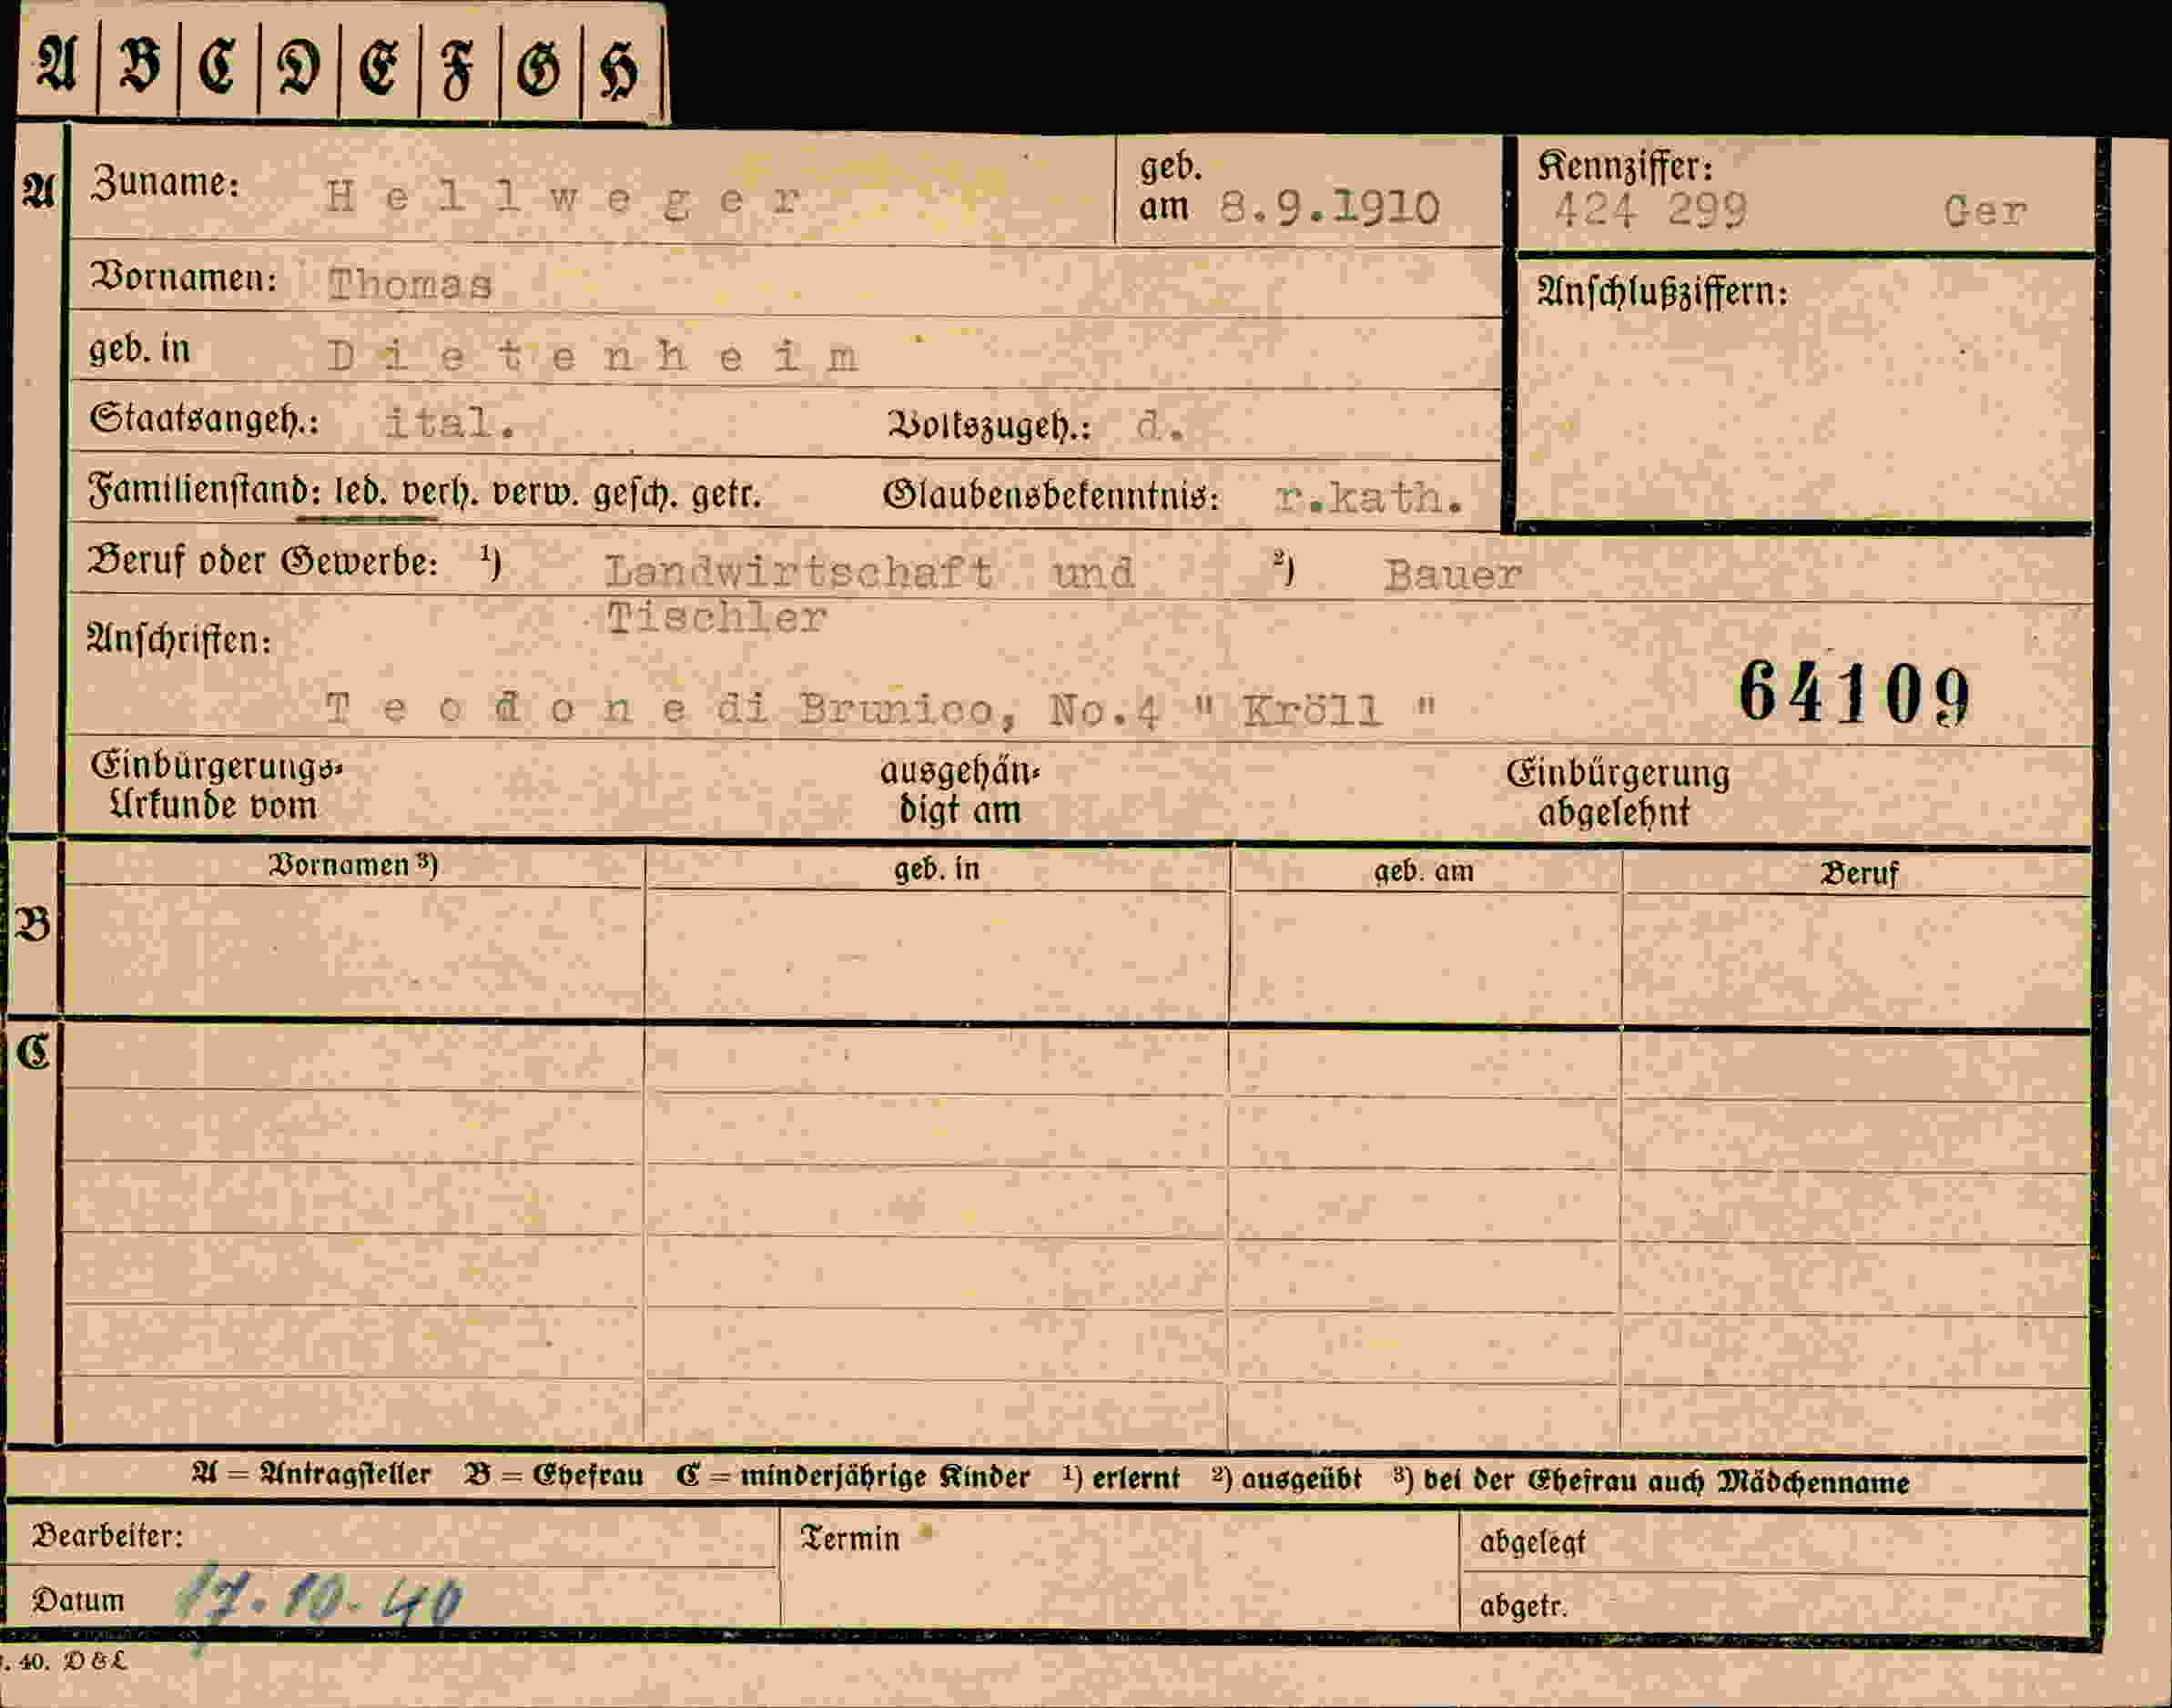 A B C D E F G H
A Zuname: Hellweger geb. am 8.9.1910 Kennziffer: 424 299 Ger
Vornamen: Thomas Anschlußziffern:
geb. in Dietenheim
Staatsangeh.: ital. Volkszugeh.: d.
Familienstand: led. verh. verw. gesch. getr. Glaubensbekenntnis: r.kath.
Beruf oder Gewerbe: ¹) Landwirtschaft und ²) Bauer
Tischler
Anschriften:
Teodone di Brunico, No.4 " Kröll " 64109
Einbürgerungs- ausgehän- Einbürgerung
Urkunde vom digt am abgelehnt
Vornamen ³) geb. in geb. am Beruf
B
C
A = Antragsteller B = Ehefrau C = minderjährige Kinder ¹) erlernt ²) ausgeübt ³) bei der Ehefrau auch Mädchenname
Bearbeiter: Termin abgelegt
Datum 17.10.40 abgetr.
. 40. D & L